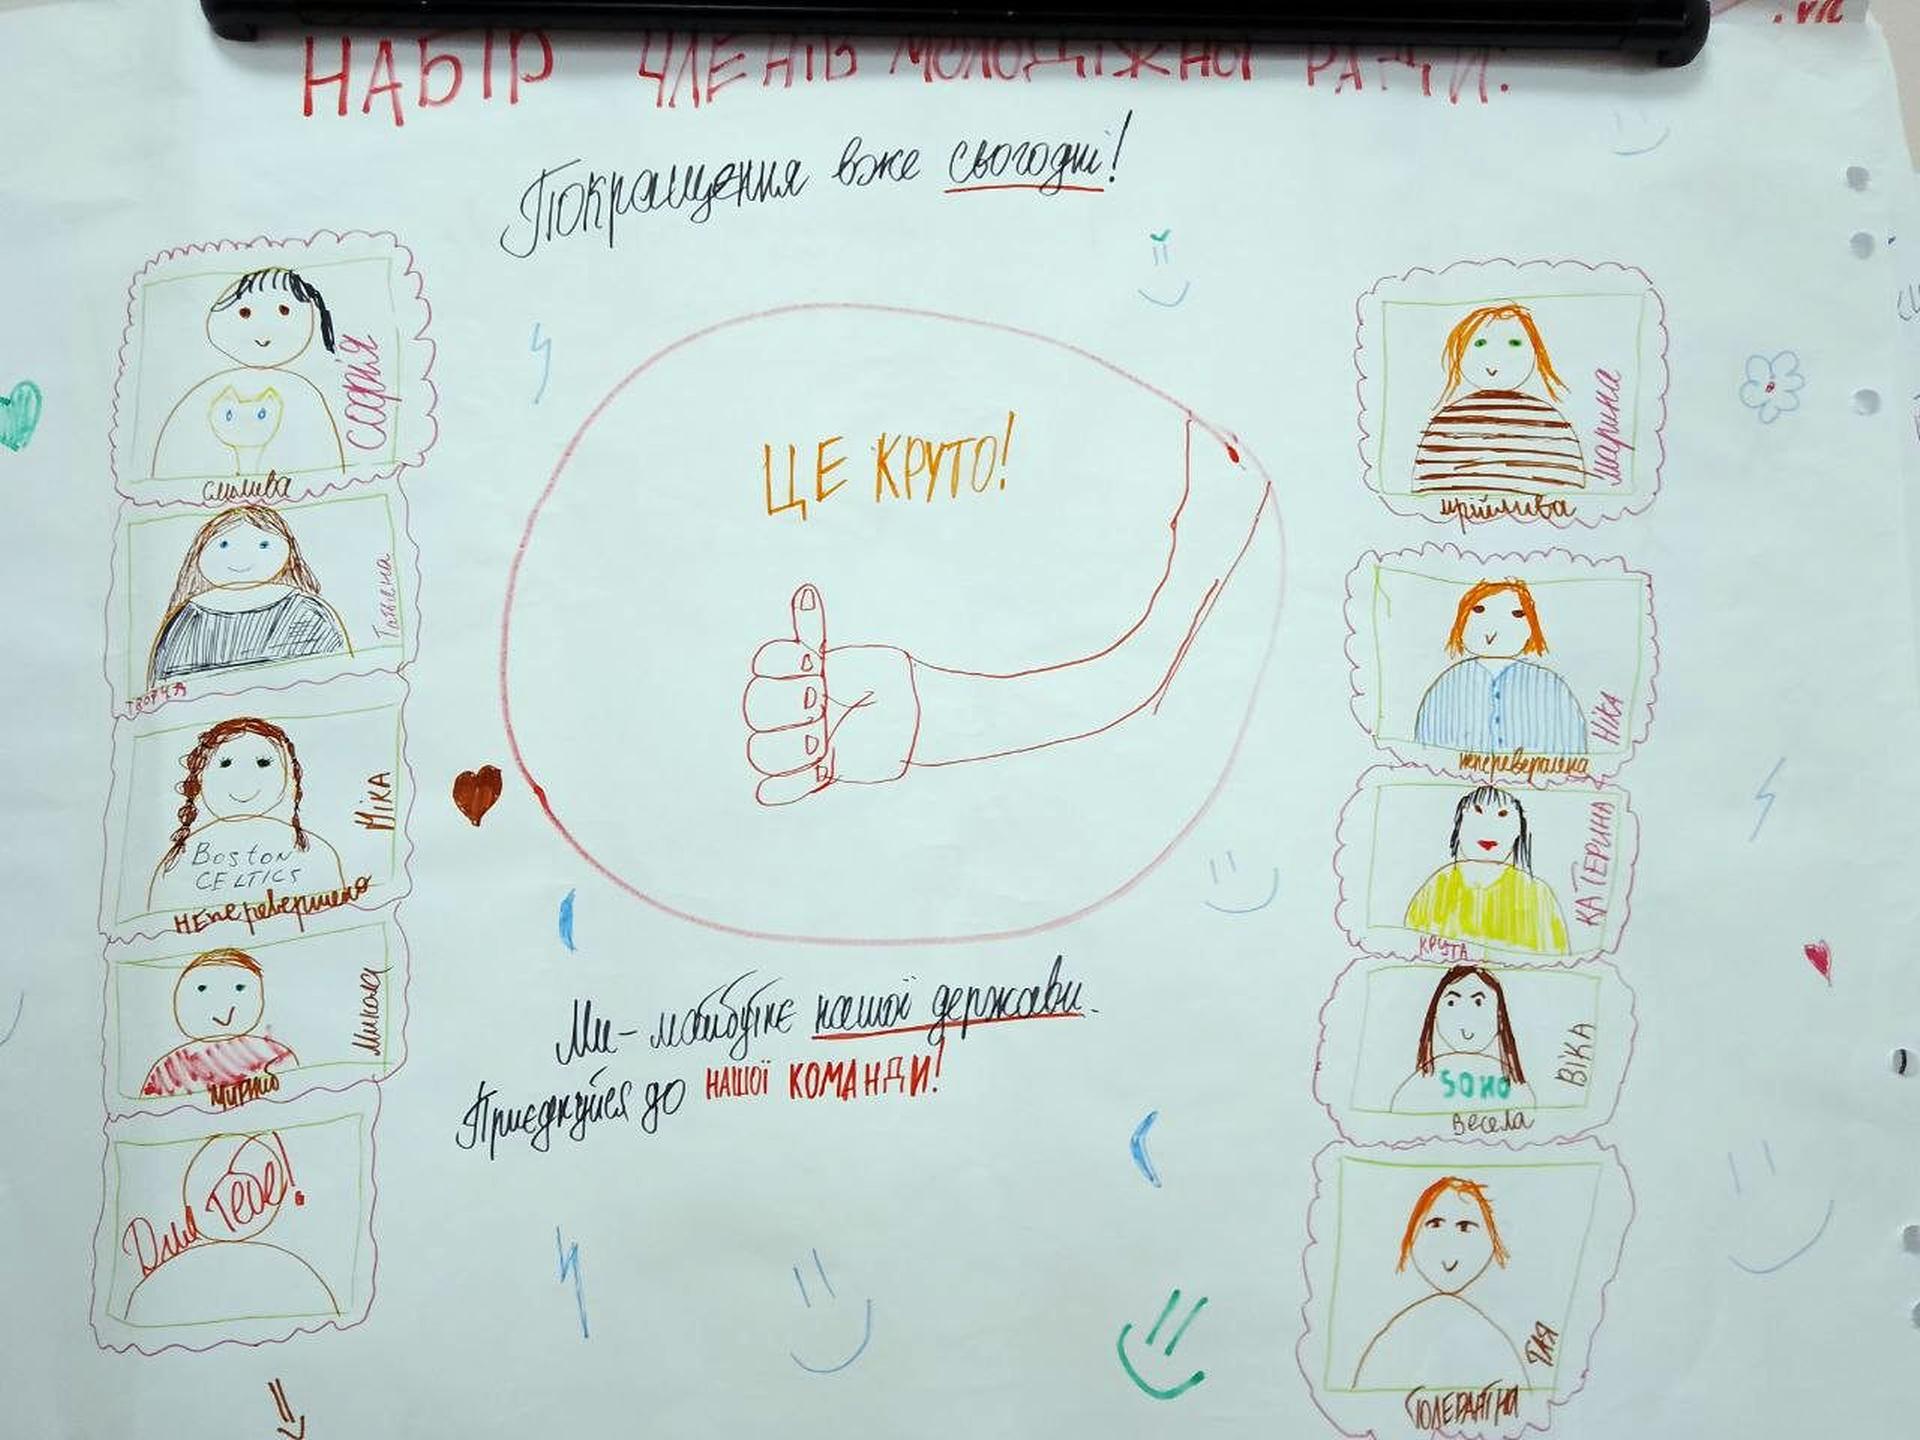 НАБІР ЧЛЕНІВ МОЛОДІЖНОЇ РАДИ:
Покращення вже сьогодні!
Софія
смілива
Татьяна
творча
Ніка
Boston
CELTICS
Неперевершена
Микола
мирний
Для Тебе!
ЦЕ КРУТО!
Ми - майбутнє нашої держави.
Приєднуйся до НАШОЇ КОМАНДИ!
Марина
мрійлива
Ніка
неперевершена
КАТЕРИНА
КРУТА
ВІКА
SOHO
весела
ТАЯ
ТОЛЕРАНТНА